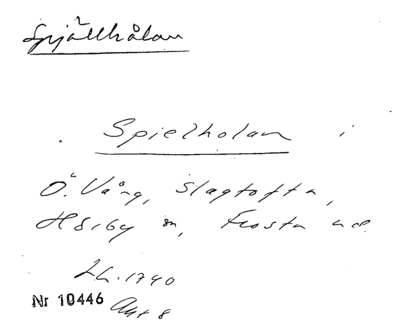 Spjällhålan
Spielholan i
Ö. Vång, Slagtofta,
Hörby sn, Frosta hd.
LA. 1740
Nr 10446 Akt 8